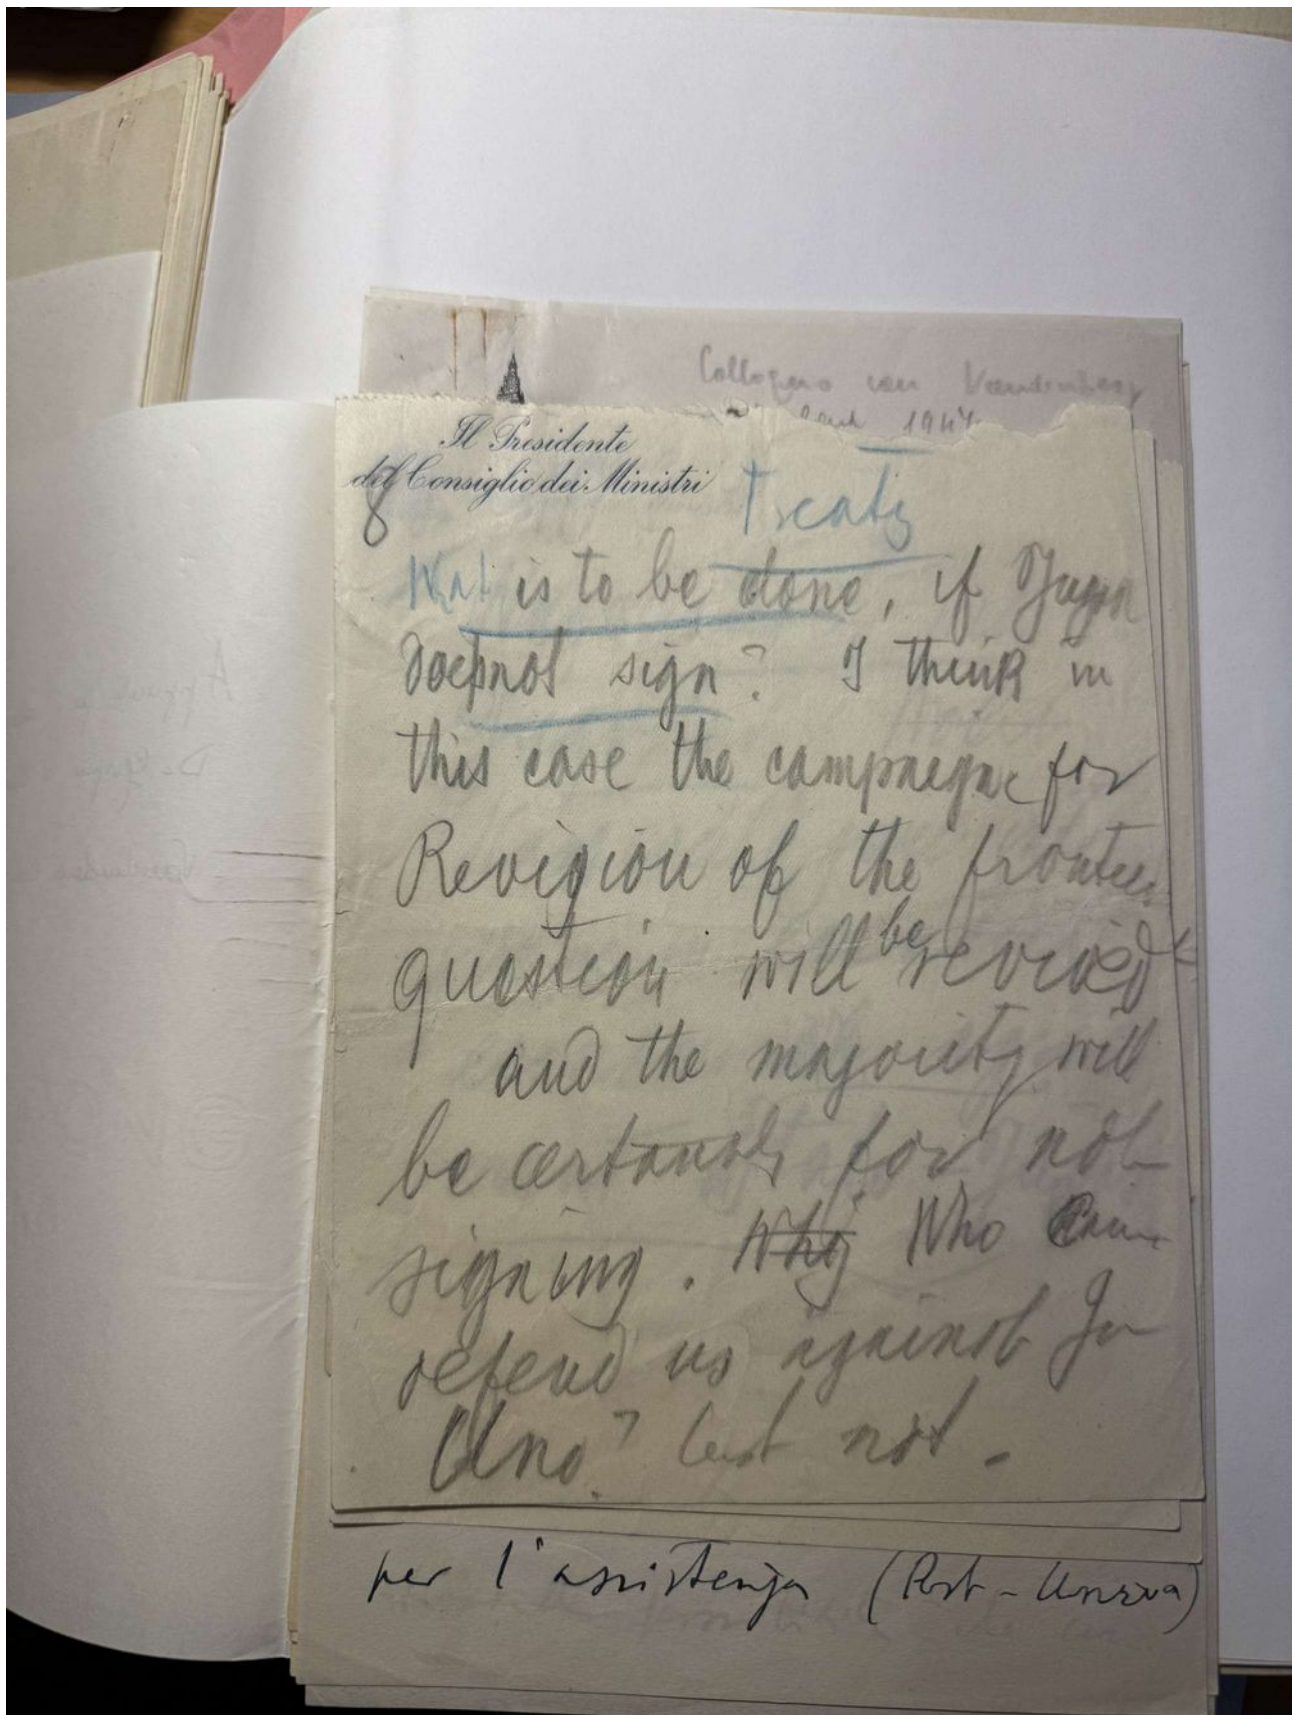 Colloquio con Vandenberg
1947
Il Presidente
del Consiglio dei Ministri
8
Treaty
What is to be done, if Jugosl
does not sign? I think in
this case the campaigne for
Revision of the frontier
question will be revived
and the majority will
be certainly for not
signing. Why Who can
defend us against Ju
Uno? but not.
per l'assistenza (Post-Unrra)